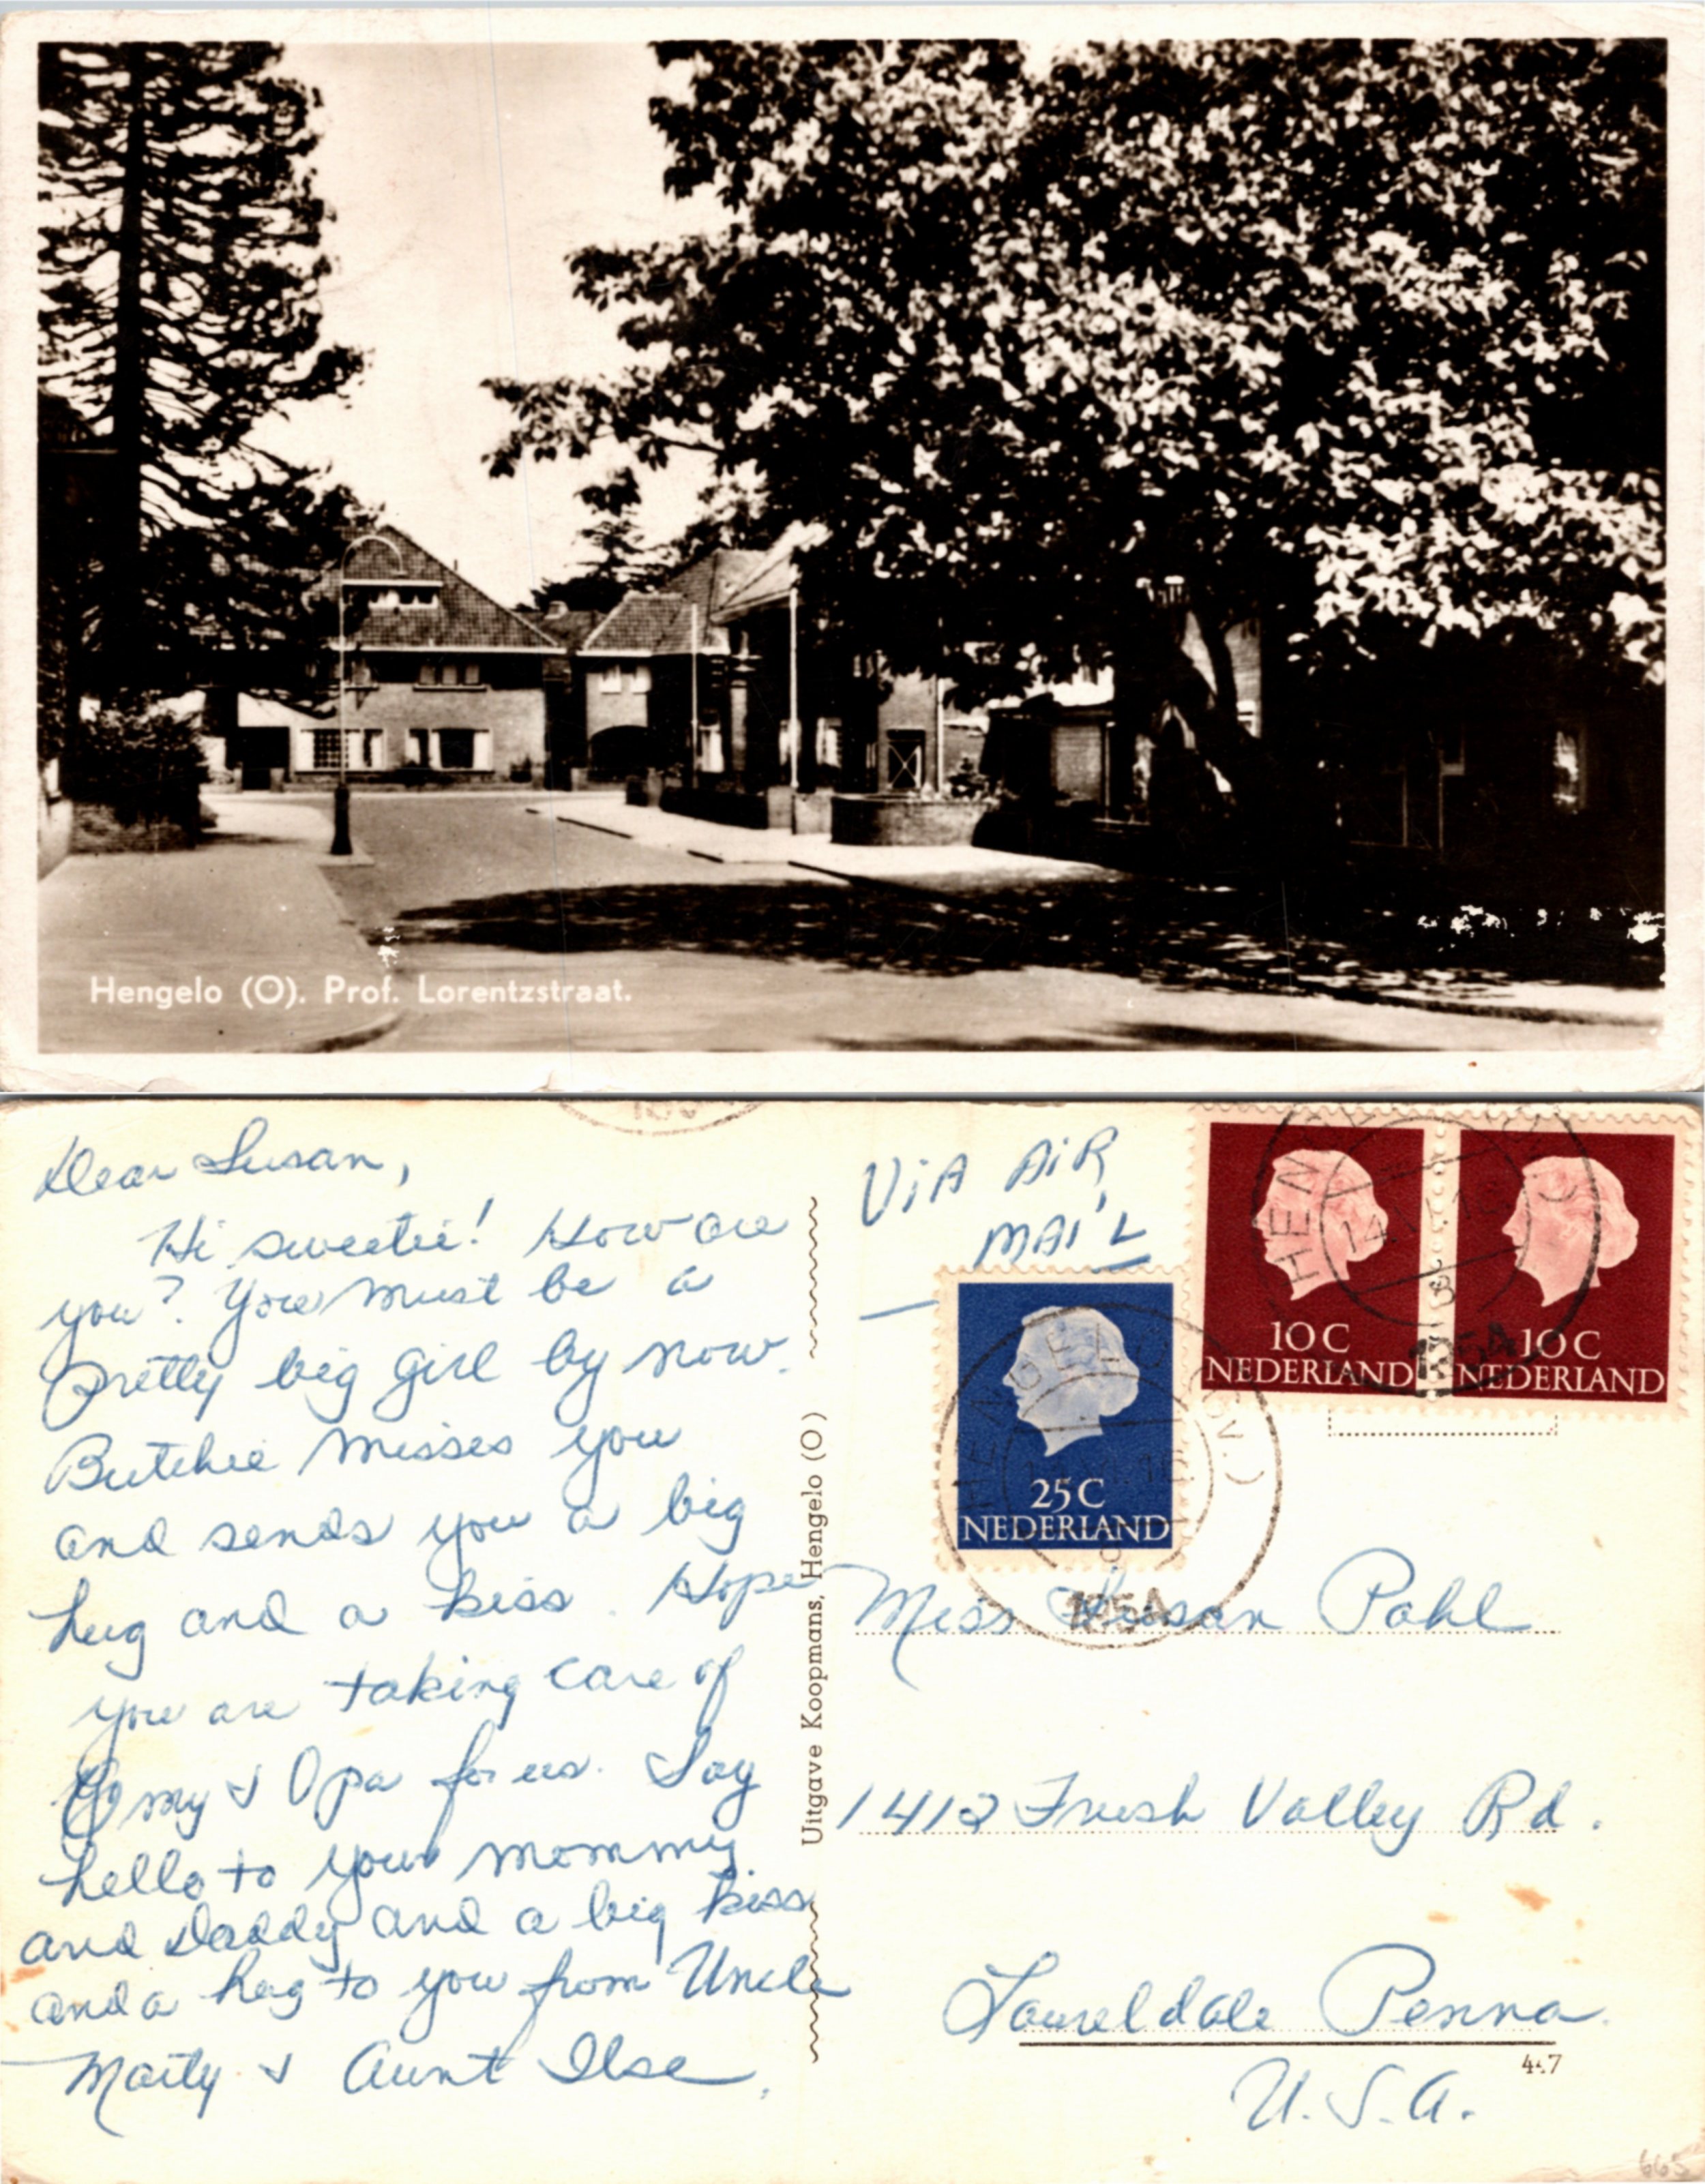 Hengelo (O). Prof. Lorentzstraat.
Dear Susan,
Hi sweetie! How are
you? You must be a
pretty big girl by now.
Butchie misses you
and sends you a big
hug and a kiss. Hope
you are taking care of
Omy & Opa for us. Say
hello to your mommy
and Daddy and a big kiss
and a hug to you from Uncle
Marty & Aunt Ilse.
Uitgave Koopmans, Hengelo (O)
ViA AiR
MAiL
10 C
NEDERLAND
10 C
NEDERLAND
25 C
NEDERLAND
1954
1954
Miss Susan Pohl
1412 Frush Valley Rd.
Laureldale Penna.
U.S.A.
447
665